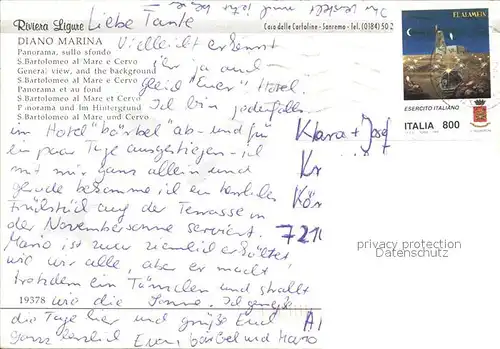 Liebe Tante
Riviera Ligure
Casa delle Cartoline - Sanremo - Tel. (0184) 50 2
DIANO MARINA
Panorama, sullo sfondo
S.Bartolomeo al Mare e Cervo
General view, and the background
S.Bartolomeo al Mare e Cervo
Panorama et au fond
S.Bartolomeo al Mare et Cervo
Panorama und im Hintergrund
S.Bartolomeo al Mare und Cervo
19378
Vielleicht erkennt
ihr ja auch
gleich "Euer" Hotel.
Ich bin jedenfalls
im Hotel ab- und für
ein paar Tage ausgestiegen - ich
mit mir ganz allein und
gerade bekomme ich ein
Frühstück auf der Terrasse in
der Novembersonne serviert.
Mario ist zwar ziemlich erkältet
wie wir alle, aber er macht
trotzdem ein Tänzchen und strahlt
wie die Sonne. Ich genieße
die Tage hier und grüße Euch
ganz herzlich Eure, bärbel und Mario
Klara + Josef
Kr
Kön
7210
EL ALAMEIN
ESERCITO ITALIANO
ITALIA 800
privacy protection
Datenschutz